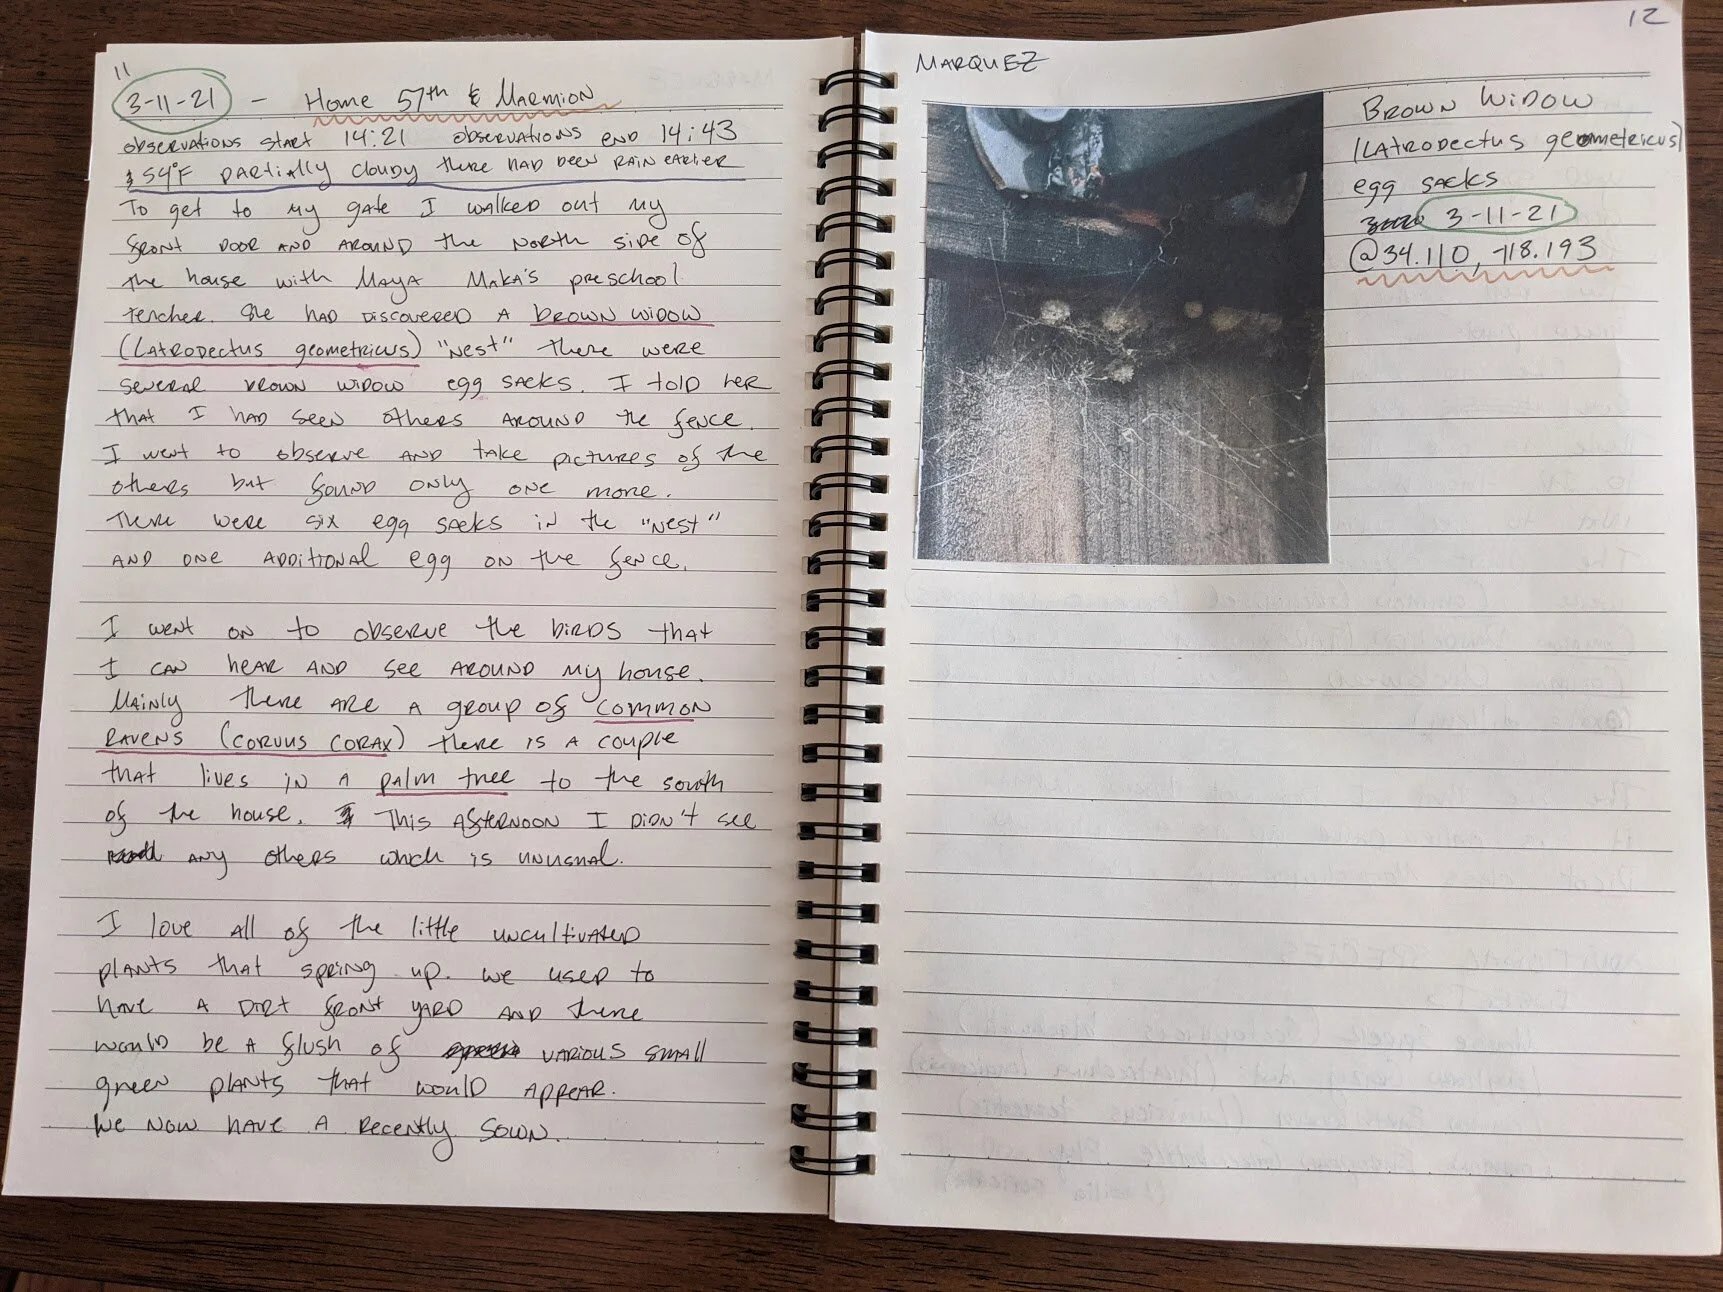 11
3-11-21 - Home 57th & Marmion
observations start 14:21 observations end 14:43
54°F partially cloudy there had been rain earlier
To get to my gate I walked out my
front door and around the north side of
the house with Maya Maka's preschool
teacher. She had discovered a brown widow
(Latrodectus geometricus) "nest" there were
several brown widow egg sacks. I told her
that I had seen others around the fence.
I went to observe and take pictures of the
others but found only one more.
There were six egg sacks in the "nest"
and one additional egg on the fence.
I went on to observe the birds that
I can hear and see around my house.
Mainly there are a group of common
ravens (corvus corax) there is a couple
that lives in a palm tree to the south
of the house. This afternoon I didn't see
any others which is unusual.
I love all of the little uncultivated
plants that spring up. We used to
have a dirt front yard and there
would be a flush of various small
green plants that would appear.
We now have a recently sown.
12
MARQUEZ
Brown Widow
(Latrodectus geometricus)
egg sacks
3-11-21
@34.110, -118.193